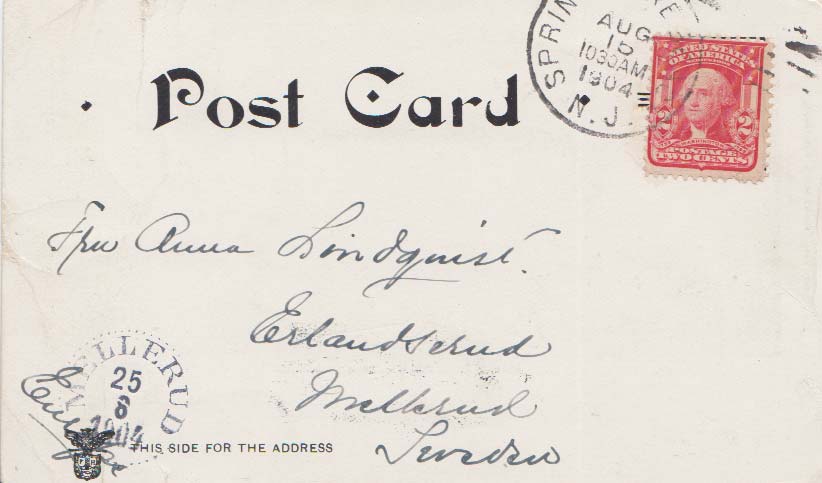 SPRIN
AUG
15
1030AM
1904
N.J.
UNITED STATES
OF AMERICA
2 2
WASHINGTON
POSTAGE
TWO CENTS
Post Card
Fru Anna Lindquist.
Erlandserud
Mellerud
Sweden
MELLERUD
25
8
1904
Europa
THIS SIDE FOR THE ADDRESS